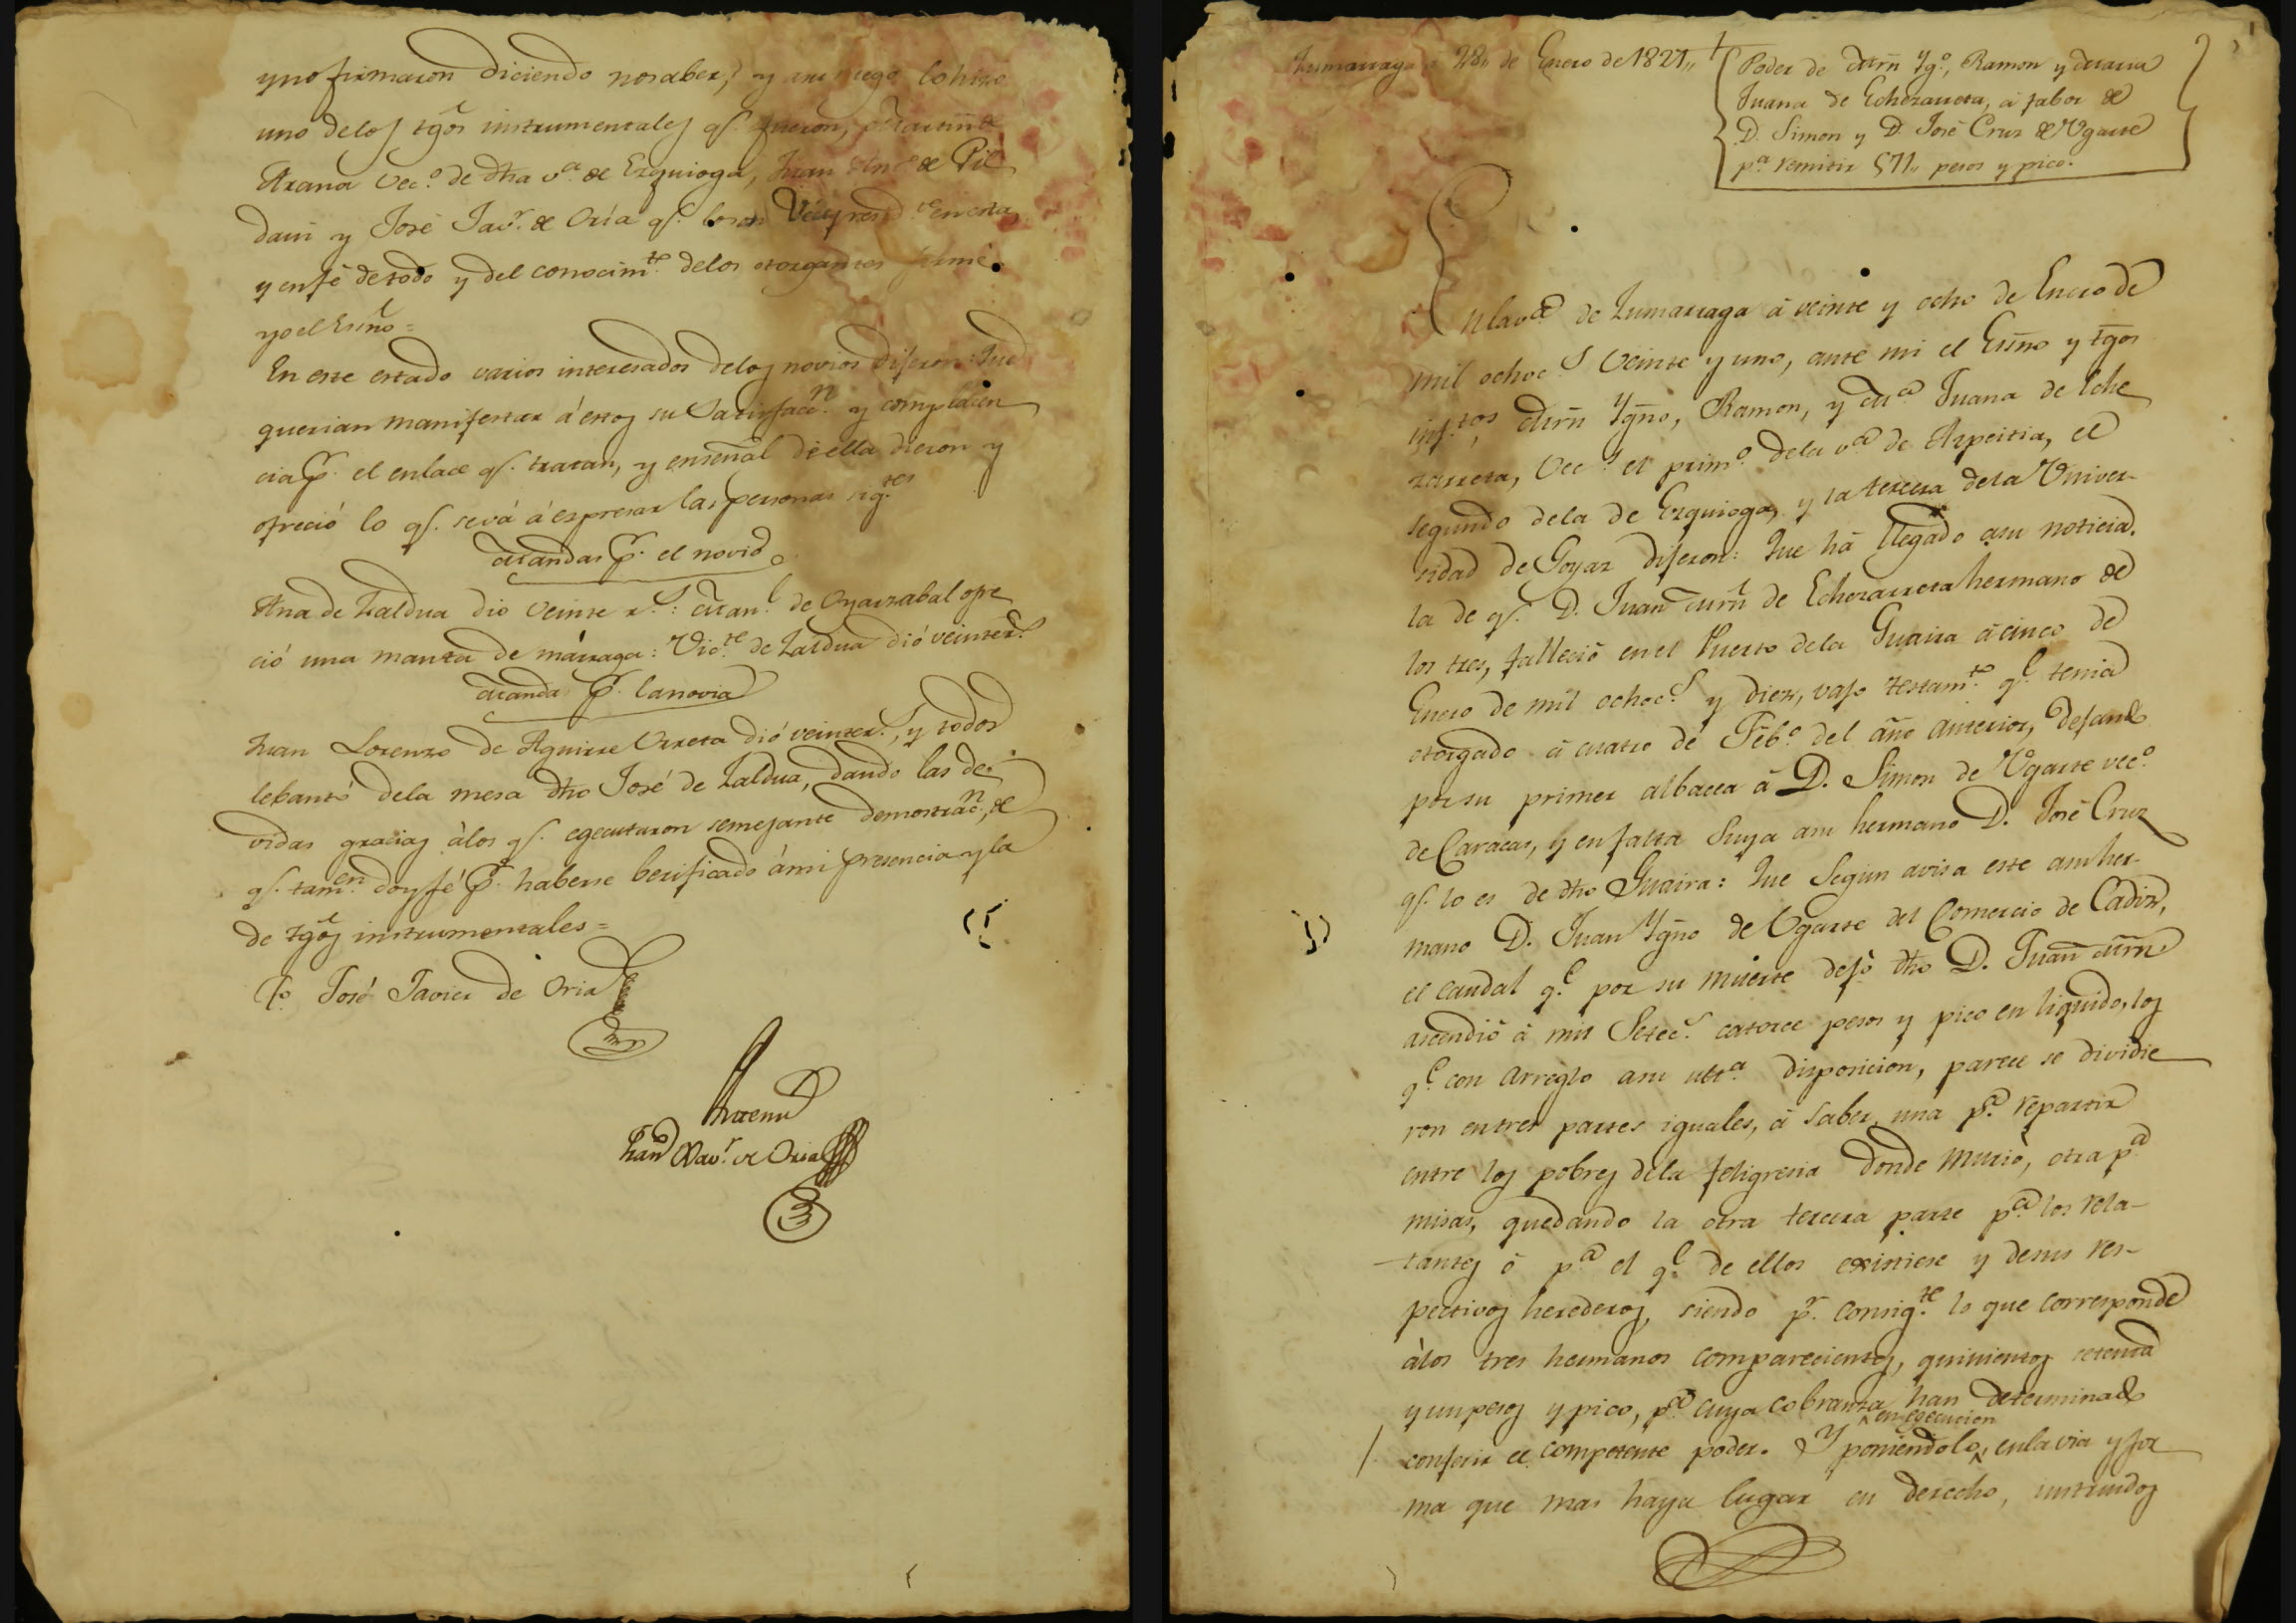 y no firmaron diciendo no saber, y a su ruego lo hizo
uno de los tgõs instrumentales qe. fueron, Martin de
Arana vec.º de dha v.ª de Ezquioga, Juan de Pil
dain y José Jav.r de Oria qe. lo son Vec.s y resid.tes en esta
y en fé de todo y del conocim.to de los otorgantes firmé
yo el Esnõ=
En este estado varios interesados de los novios dijeron: Que
querian manifestar á estos su Satisfacc.n y complacen
cia pr. el enlace qe. tratan, y en señal de ella dieron y
ofreció lo qe. se vá á espresar las personas sig.tes
Mandas pr. el novio
Ana de Zaldua dio veinte r.s: Man.l de Oyarzabal ofre
ció una manta de márraga: Vic.te de Zaldua dió veinte r.s
Manda pr. la novia
Juan Lorenzo de Aguirre Urreta dió veinte r.s, y todos
lebantó de la mesa dho José de Zaldua, dando las de-
vidas gracias à los qe. egecutaron semejante demostrac.n, de
qe. tam.en doy fé pr. haberse berificado á mi presencia y la
de tgõs instrumentales=
To José Javier de Oria
Ante mi
Fran.co Xav.r de Oria
Zumarraga á 28,, de Enero de 1821,,
Poder de Mrñ Yg.º, Ramon y Maria
Juana de Echezarreta, á fabor de
D. Simon y D. José Cruz de Ugarte
p.a remitir 571,, pesos y pico.
En la v.a de Zumarraga á veinte y ocho de Enero de
mil ochoc.s veinte y uno, ante mi el Esnõ y tgõs
insf.tos, Mrñ Ygnõ, Ramon, y M.a Juana de Eche
zarreta, vec.s el prim.º de la v.a de Azpeitia, el
segundo de la de Ezquioga, y la tercera de la Univer-
sidad de Goyaz dijeron: Que há llegado a su noticia
la de qe. D. Juan Mrñ de Echezarreta hermano de
los tres, falleció en el Puerto de la Guaira á cinco de
Enero de mil ochoc.s y diez, vajo testam.to qe. tenia
otorgado á cuatro de Feb.º del año anterior, dejando
por su primer albacea á D. Simon de Ugarte vec.º
de Caracas, y en falta suya a su hermano D. José Cruz
qe. lo es de dho Guaira: Que segun avisa este a su her-
mano D. Juan Ygnõ de Ugarte del Comercio de Cadiz,
el caudal qe. por su muerte dejó dho D. Juan Mrñ
ascendió á mil Setec.s catorce pesos y pico en liquido, los
qe. con arreglo a su ult.a disposicion, parece se dividie
ron en tres partes iguales, á saber, una p.a repartir
entre los pobres de la feligresia donde murió, otra p.a
misas, quedando la otra tercera parte p.a los rela-
tantes ó p.a el qe. de ellos existiese y de sus res-
pectivos herederos, siendo pr. consig.te lo que corresponde
à los tres hermanos comparecientes, quinientos setenta
y un pesos y pico, p.a cuya cobranza han determinado
en egecucion
conferir el competente poder. Y poniendolo, en la via y for
ma que mas haya lugar en derecho, instruidos